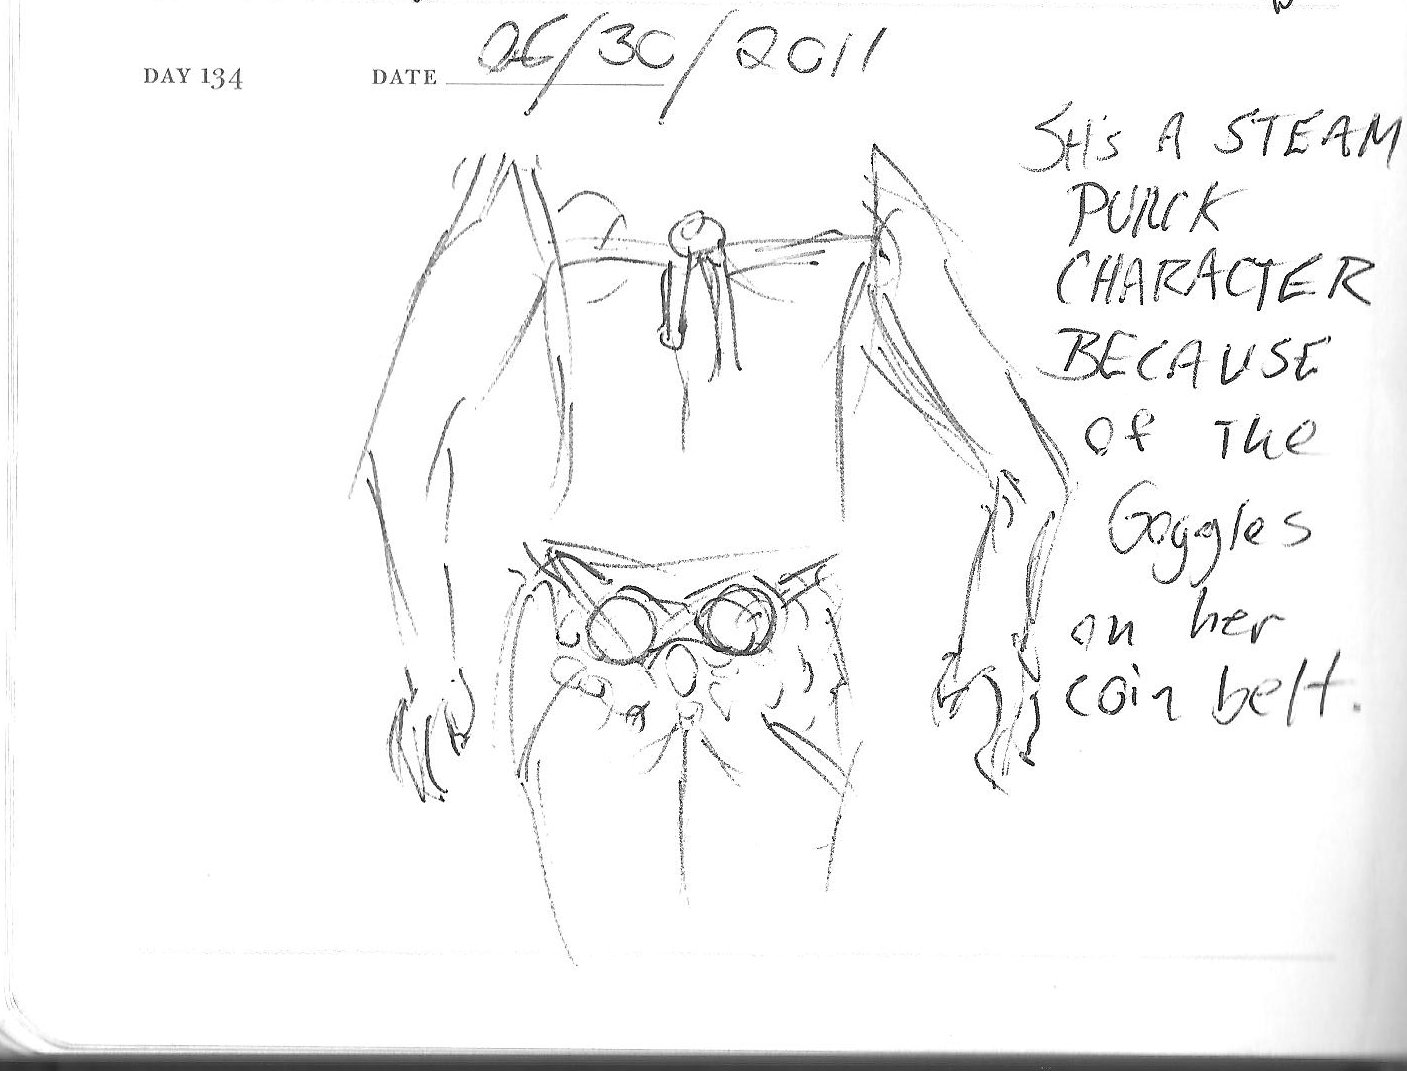 DAY 134 DATE 06/30/2011
SH's A STEAM
PUNCK
CHARACTER
BECAUSE
of The
Goggles
on her
coin belt.